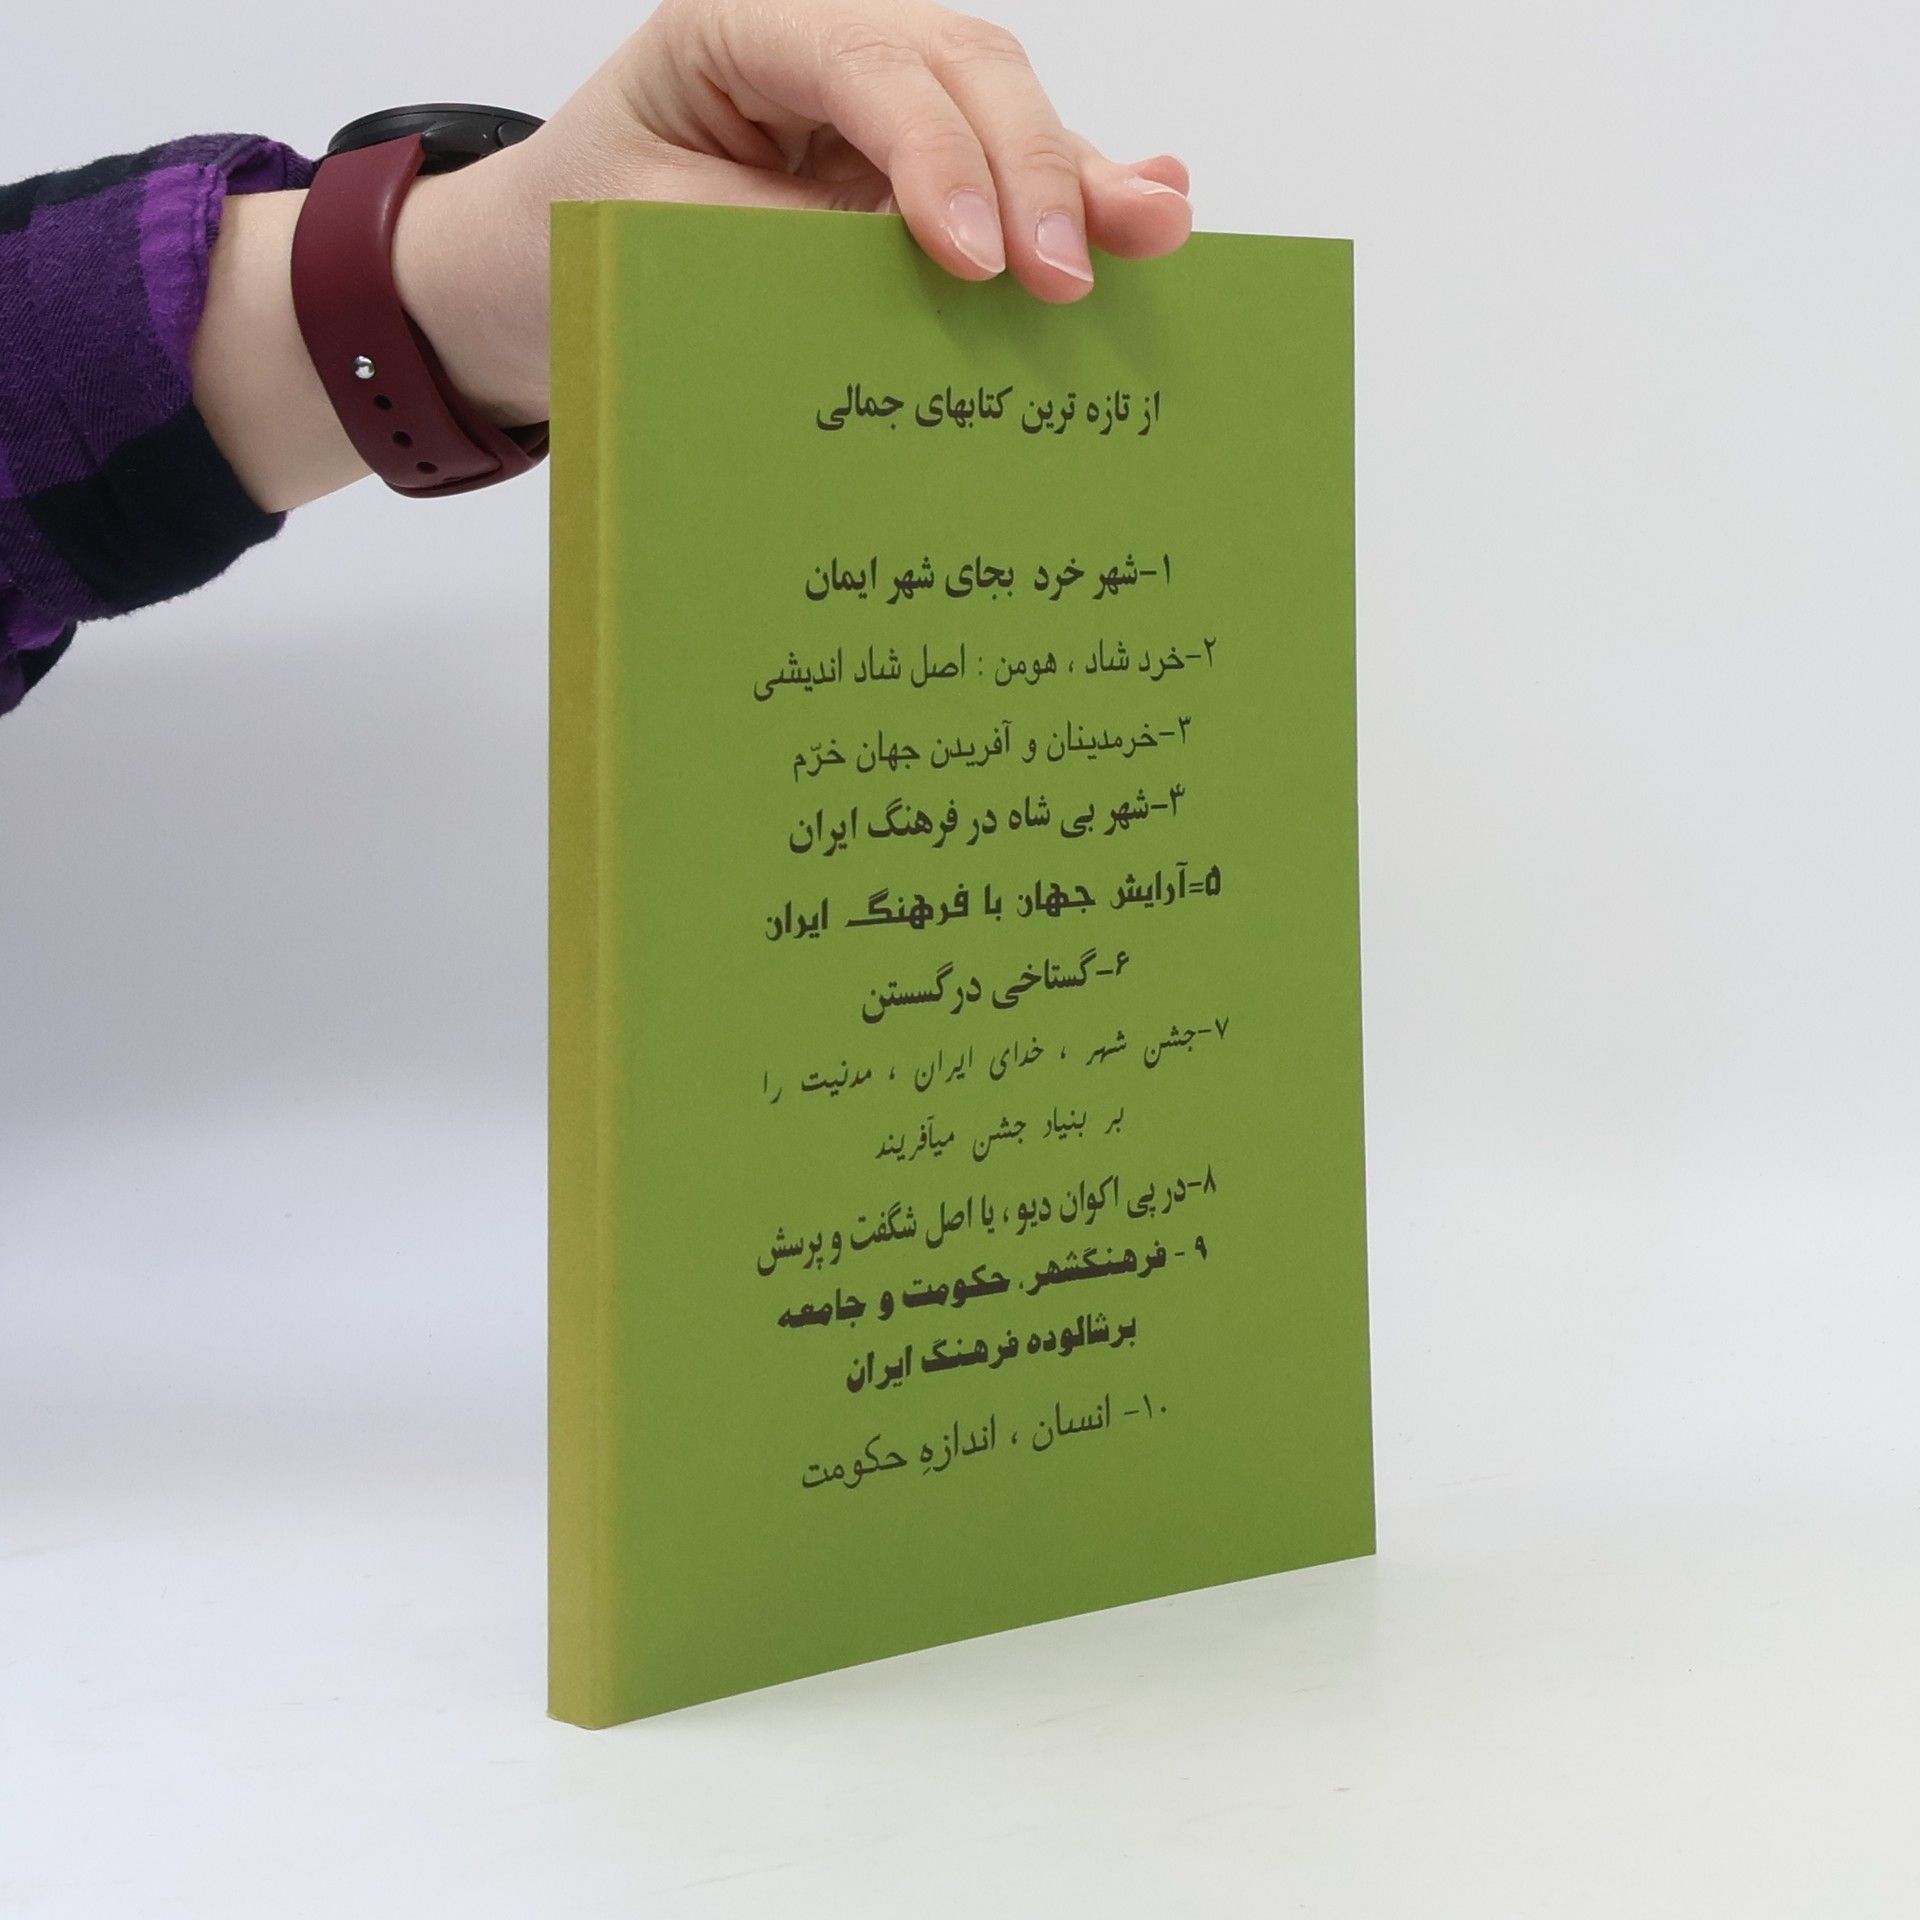 از تازه ترین کتابهای جمالی
۱-شهر خرد بجای شهر ایمان
۲-خرد شاد ، هومن : اصل شاد اندیشی
۳-خرمدینان و آفریدن جهان خرّم
۴-شهر بی شاه در فرهنگ ایران
۵=آرایش جهان با فرهنگ ایران
۶-گستاخی در گسستن
۷-جشن شهر ، خدای ایران ، مدنیت را
بر بنیاد جشن میآفریند
۸-در پی اکوان دیو ، یا اصل شگفت و پرسش
۹ - فرهنگشهر، حکومت و جامعه
برشالوده فرهنگ ایران
۱۰- انسان ، اندازهِ حکومت